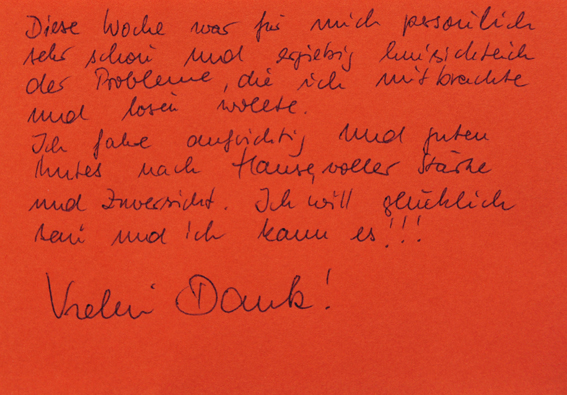 Diese Woche war für mich persönlich
sehr schön und ergiebig hinsichtlich
der Probleme, die ich mitbrachte
und lösen wollte.
Ich fahre aufrichtig und guten
Mutes nach Hause, voller Stärke
und Zuversicht. Ich will glücklich
sein und ich kann es!!!
Vielen Dank!